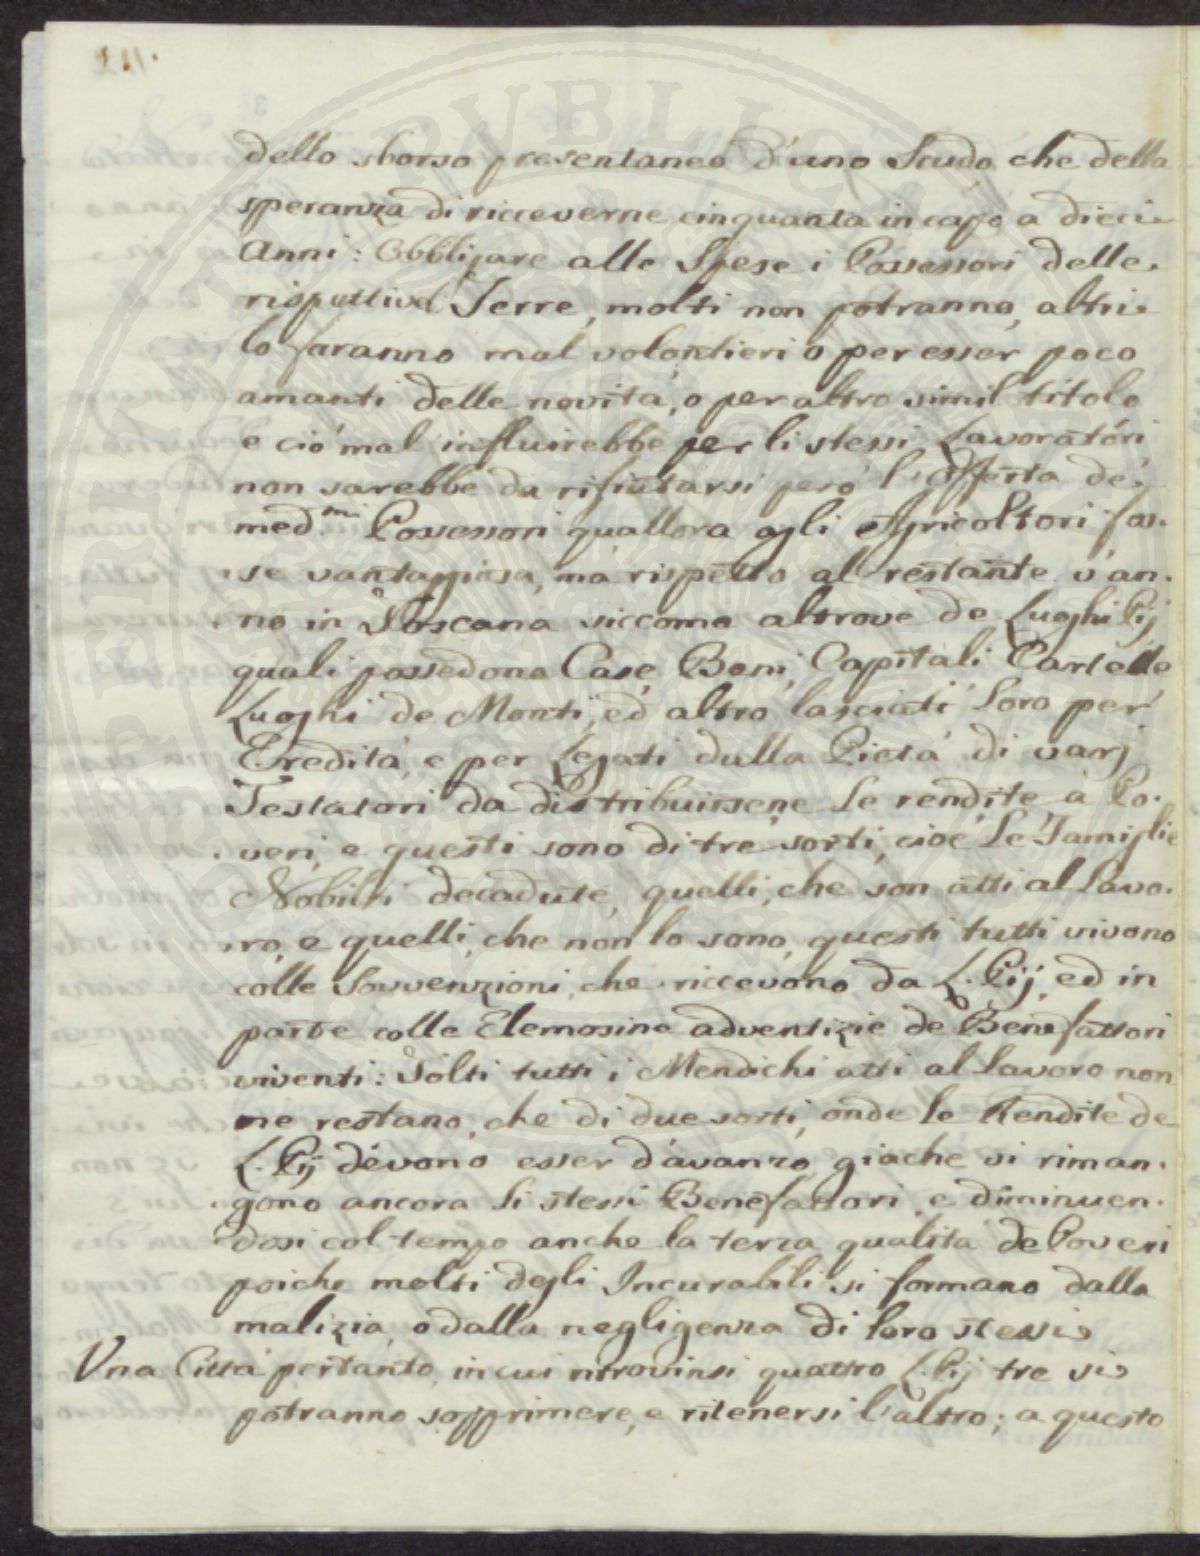 dello sborso presentaneo d'uno Scudo che della
speranza di ricceverne cinquanta in capo a dieci
Anni: Obbligare alle Spese i Possessori delle
rispettive Terre, molti non potranno, altri
lo faranno mal volontieri o per esser poco
amanti delle novità, o per altro simil titolo
e ciò mal influirebbe per li stessi Lavoratóri
non sarebbe da rifiutarsi però l'offerta de'
med.mi Possessori quallora agli Agricoltori fos-
se vantaggiosa, mà rispetto al restante v'an-
no in Toscana siccome altrove de Luoghi Pij
quali possedono Case, Beni, Capitali Cartelle
Luoghi de Monti, ed altro lasciati loro per
Eredità, e per Legati dalla Pietà di varj
Testatori da distribuirsene le rendite à Po-
veri, e questi sono di tre sorti, cioè le Famiglie
Nobili decadute, quelli, che son atti al Lavo-
ro, e quelli, che non lo sono, questi tutti vivono
colle Sovvenzioni, che riccevono da L. Pij, ed in
parte colle Elemosine adventizie de Benefattori
viventi: Tolti tutti i Mendichi atti al Lavoro non
ne restano, che di due sorti, onde le Rendite de
L. Pij dévono esser d'avanzo, giache vi riman-
gono ancora li stessi Benefattori, e diminuen-
dosi col tempo anche la terza qualità de Poveri
poiche molti degli Incurabili si formano dalla
malizia, o dalla negligenza di loro stessi
Una Città pertanto, in cui ritrovinsi quattro L. Pij tre si
potranno sopprimere, e ritenersi l'altro; a questo